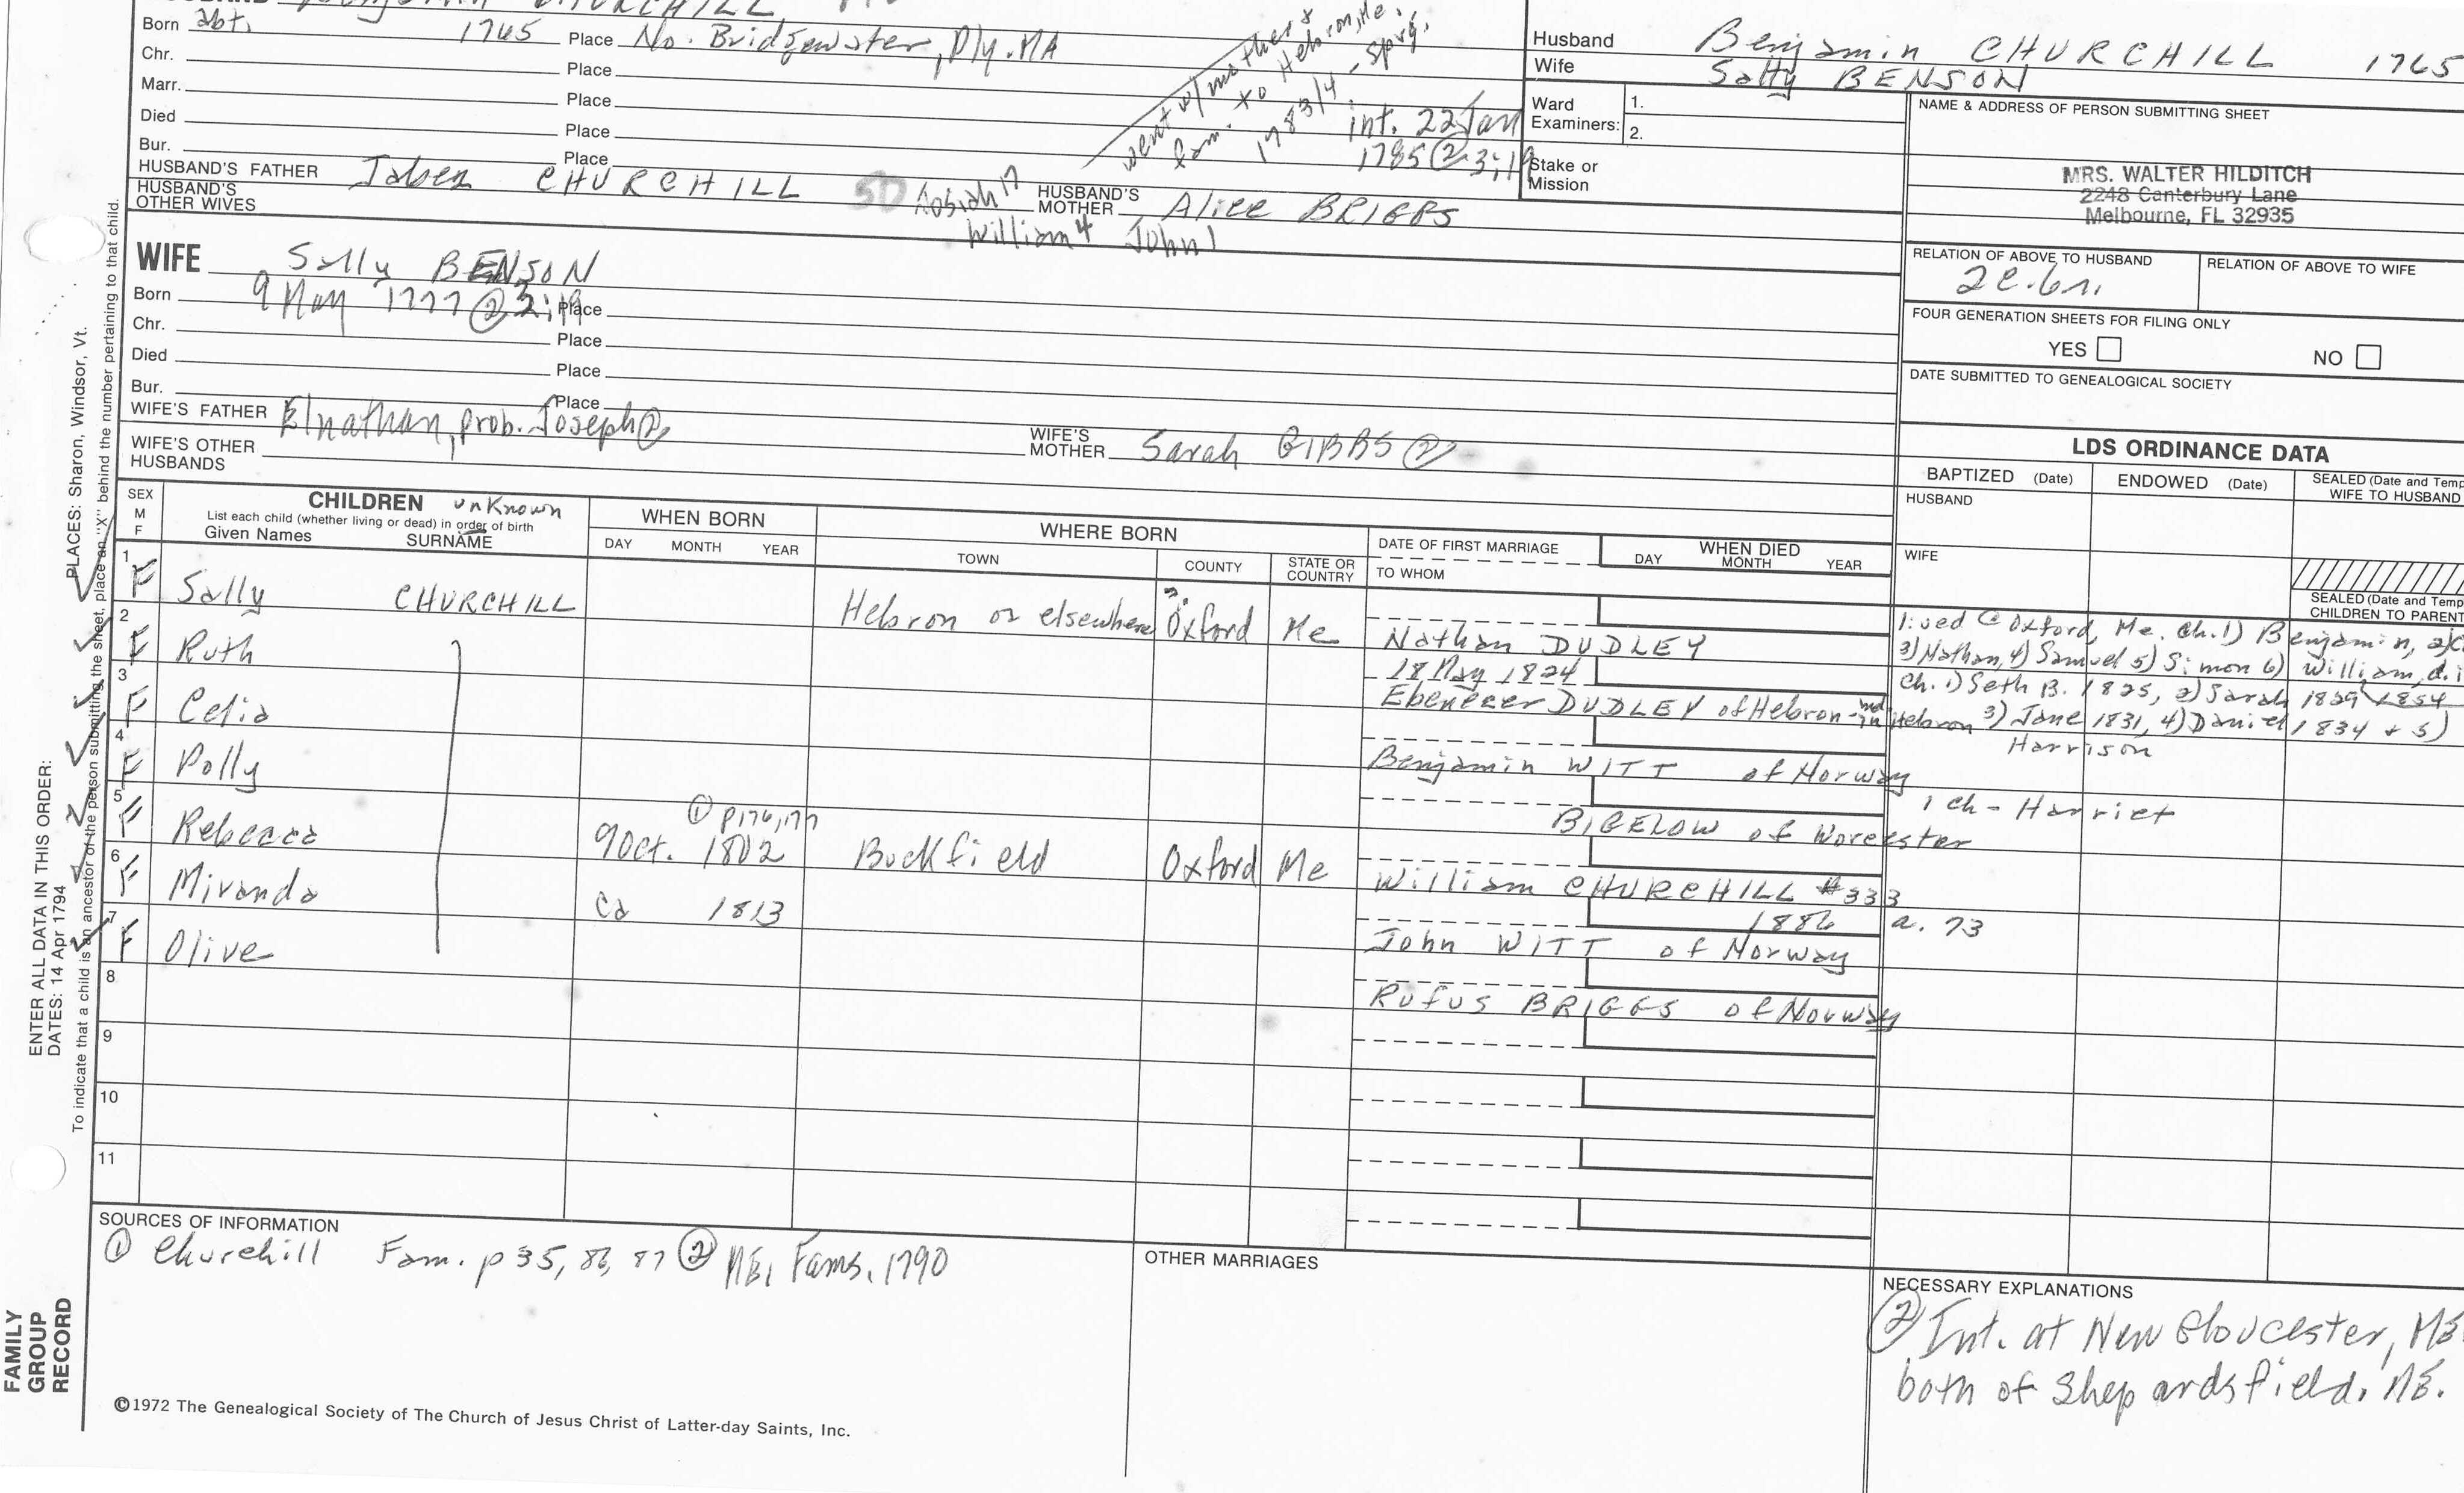 Benjamin CHURCHILL
Born abt. 1765 Place No. Bridgewater, Ply. MA
Chr. Place
Marr. Place
Died Place
Bur. Place
went w/ mother &
fam. to Hebron, Me.
1783/4 - Sprg.
int. 22 Jan
1785 ② 3;19
HUSBAND'S FATHER Jabez CHURCHILL
HUSBAND'S MOTHER Alice BRIGGS
HUSBAND'S OTHER WIVES
William 4 John 1
WIFE Sally BENSON
Born 9 May 1777 @ 3;19 Place
Chr. Place
Died Place
Bur. Place
WIFE'S FATHER Elnathan, prob. Joseph②
WIFE'S MOTHER Sarah GIBBS ②
WIFE'S OTHER HUSBANDS
Husband Benjamin CHURCHILL 1765
Wife Sally BENSON
Ward Examiners: 1.
2.
Stake or Mission
NAME & ADDRESS OF PERSON SUBMITTING SHEET
MRS. WALTER HILDITCH
2248 Canterbury Lane
Melbourne, FL 32935
RELATION OF ABOVE TO HUSBAND
RELATION OF ABOVE TO WIFE
FOUR GENERATION SHEETS FOR FILING ONLY
YES NO
DATE SUBMITTED TO GENEALOGICAL SOCIETY
LDS ORDINANCE DATA
BAPTIZED (Date) ENDOWED (Date) SEALED (Date and Temp
WIFE TO HUSBAND
HUSBAND
WIFE
SEALED (Date and Temp
CHILDREN TO PARENT
SEX
M
F
CHILDREN unknown
List each child (whether living or dead) in order of birth
Given Names SURNAME
WHEN BORN
DAY MONTH YEAR
WHERE BORN
TOWN COUNTY STATE OR COUNTRY
DATE OF FIRST MARRIAGE
TO WHOM
WHEN DIED
DAY MONTH YEAR
1 F Sally CHURCHILL Hebron or elsewhere Oxford Me Nathan DUDLEY
lived @ Oxford, Me. Ch. 1) Benjamin,
3) Nathan, 4) Samuel 5) Simon 6) William, d. i
2 F Ruth 18 May 1824
Ebenezer DUDLEY of Hebron
Ch. 1) Seth B. 1825, 2) Sarah 1829
Hebron 3) Jane 1831, 4) Daniel 1834 + 5)
Harrison
3 F Celia Benjamin WITT of Norway
1 ch - Harriet
4 F Polly BIGELOW of Worcester
5 F Rebecca 9 Oct. 1802 ① p176,177 Buckfield Oxford Me William CHURCHILL #333
6 F Miranda ca 1813 1886 a. 73
John WITT of Norway
7 F Olive Rufus BRIGGS of Norway
8
9
10
11
SOURCES OF INFORMATION
① Churchill Fam. p 35, 86, 87 ② ME, Fams. 1790
OTHER MARRIAGES
NECESSARY EXPLANATIONS
② Int. at New Gloucester, ME
both of Shepardsfield, ME.
PLACES: Sharon, Windsor, Vt.
ENTER ALL DATA IN THIS ORDER:
DATES: 14 Apr 1794
To indicate that a child is an ancestor of the person submitting the sheet, place an "X" behind the number pertaining to that child.
FAMILY
GROUP
RECORD
©1972 The Genealogical Society of The Church of Jesus Christ of Latter-day Saints, Inc.